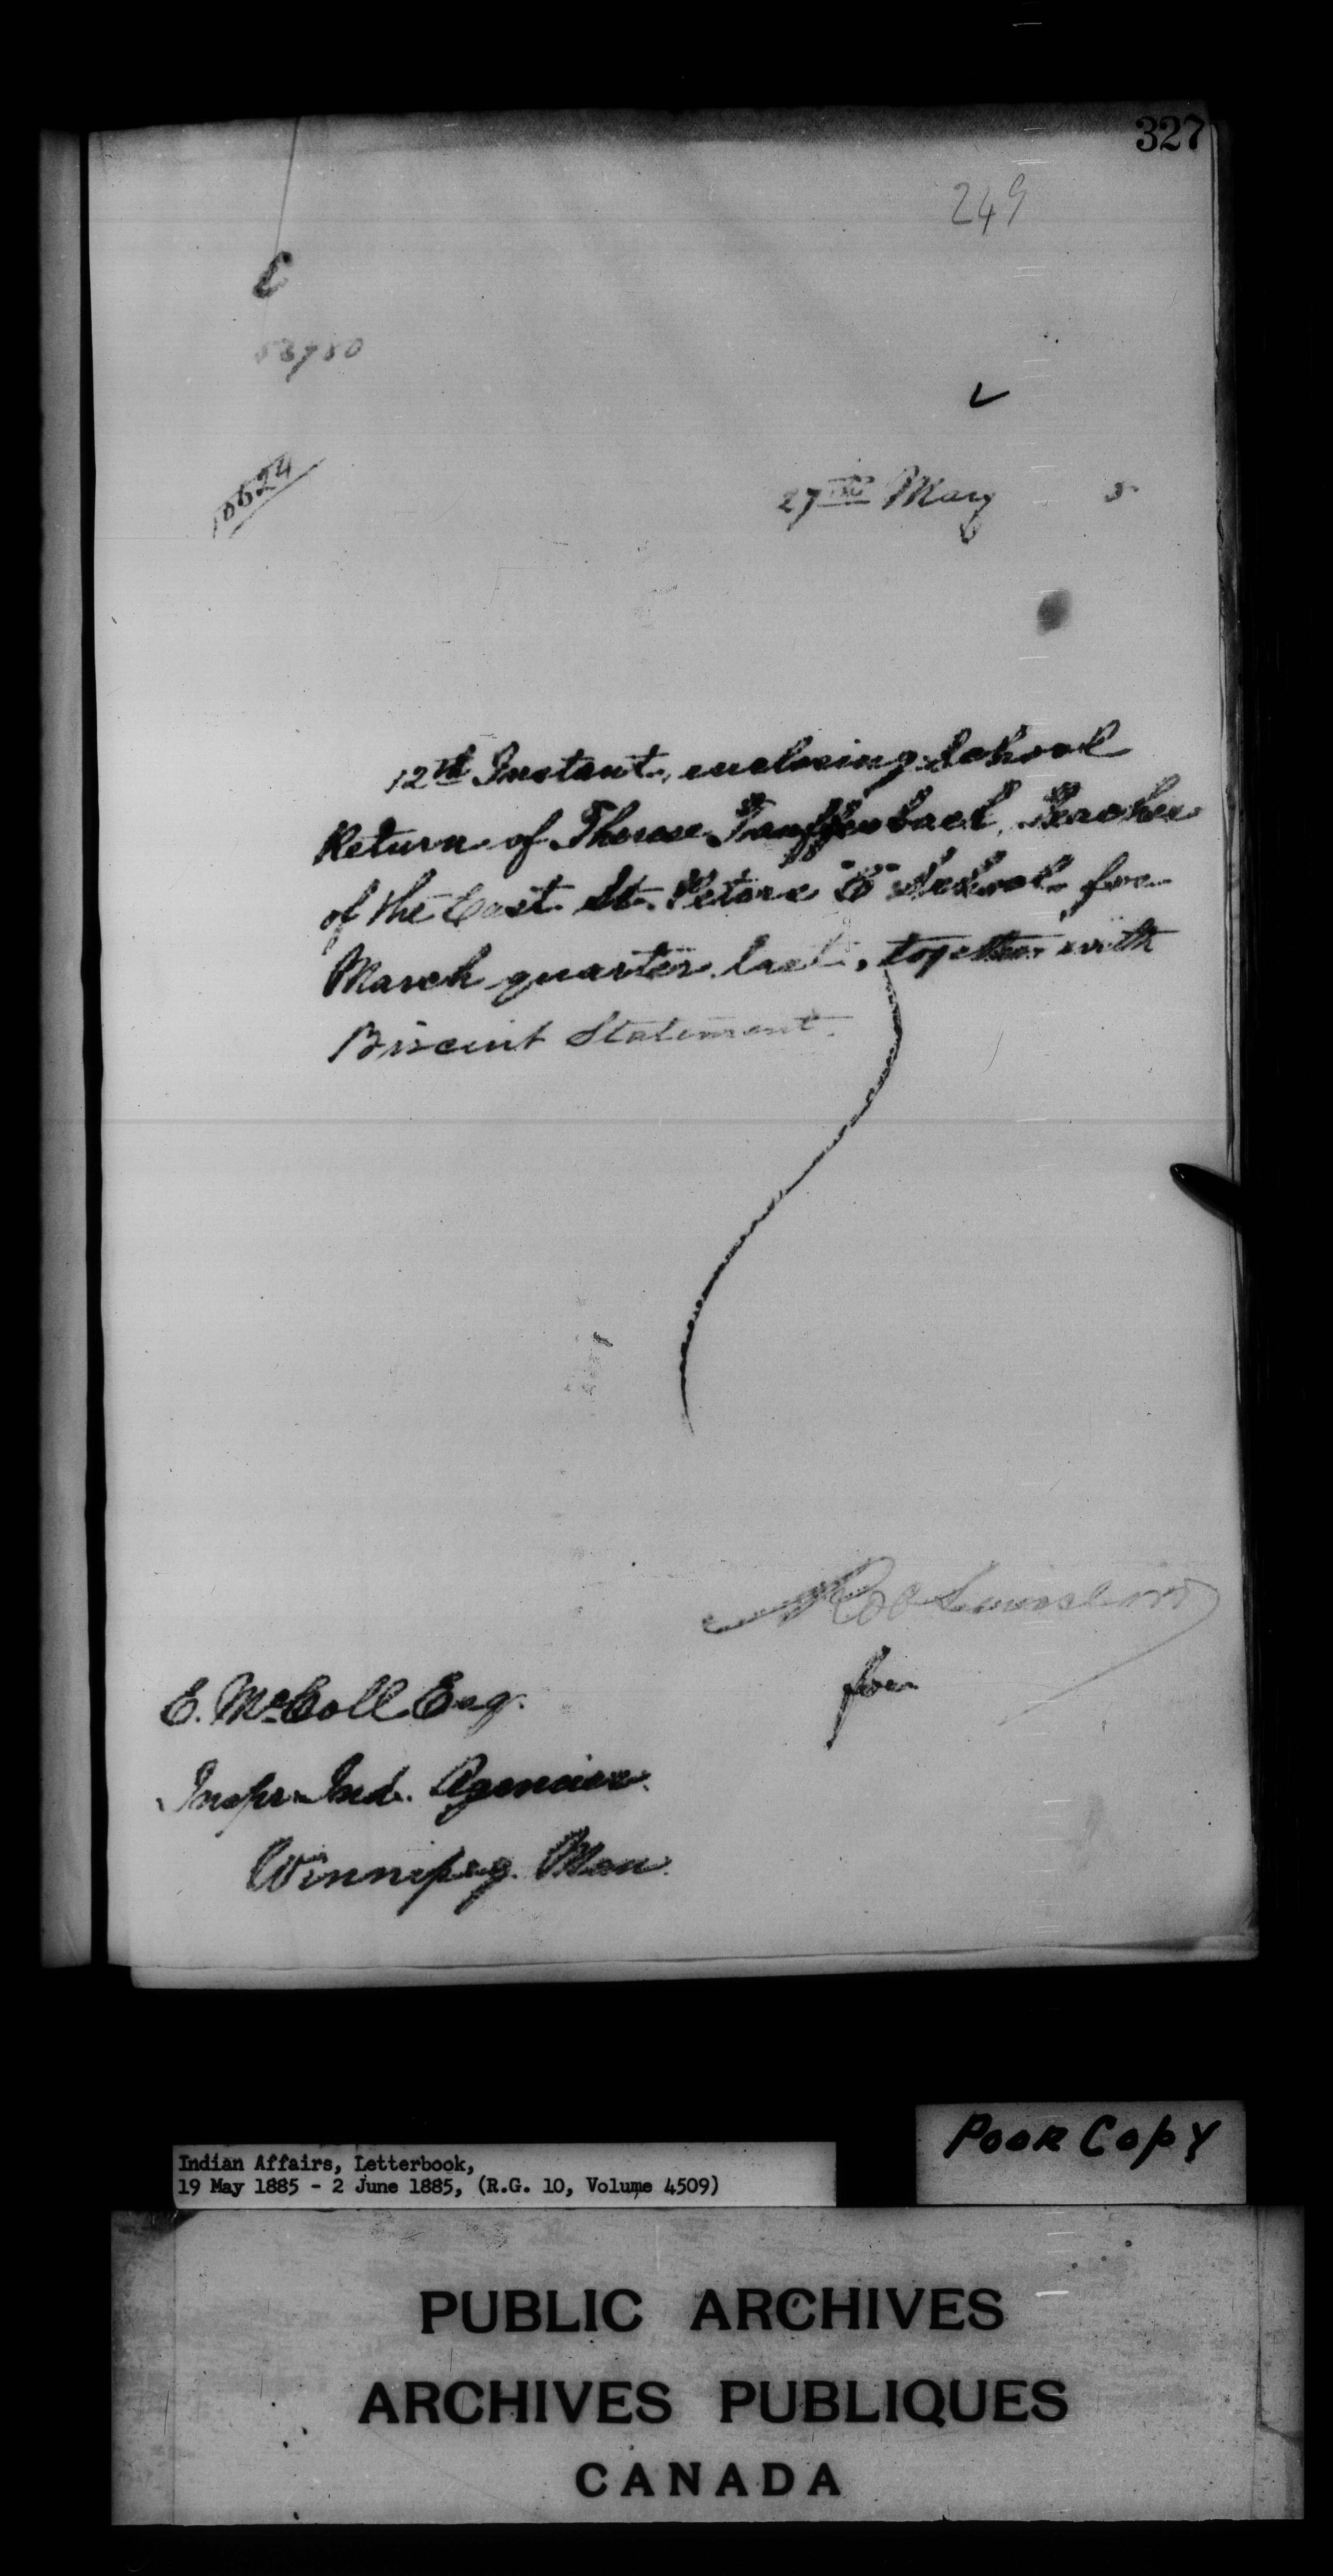 327
249
C
10624
27th May 5
12th Instant, enclosing School
Return of Therese Teacher
of the East St. Peters "B" School for
March quarter last, together with
Biscuit Statement.
for
E. McColl Esq.
Inspr. Ind. Agencies.
Winnipeg. Man.
Poor Copy
Indian Affairs, Letterbook,
19 May 1885 - 2 June 1885, (R.G. 10, Volume 4509)
PUBLIC ARCHIVES
ARCHIVES PUBLIQUES
CANADA